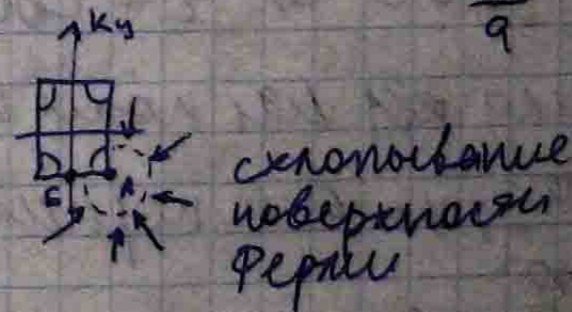 a
Ky
Б A
схлопывание
поверхности
Ферми